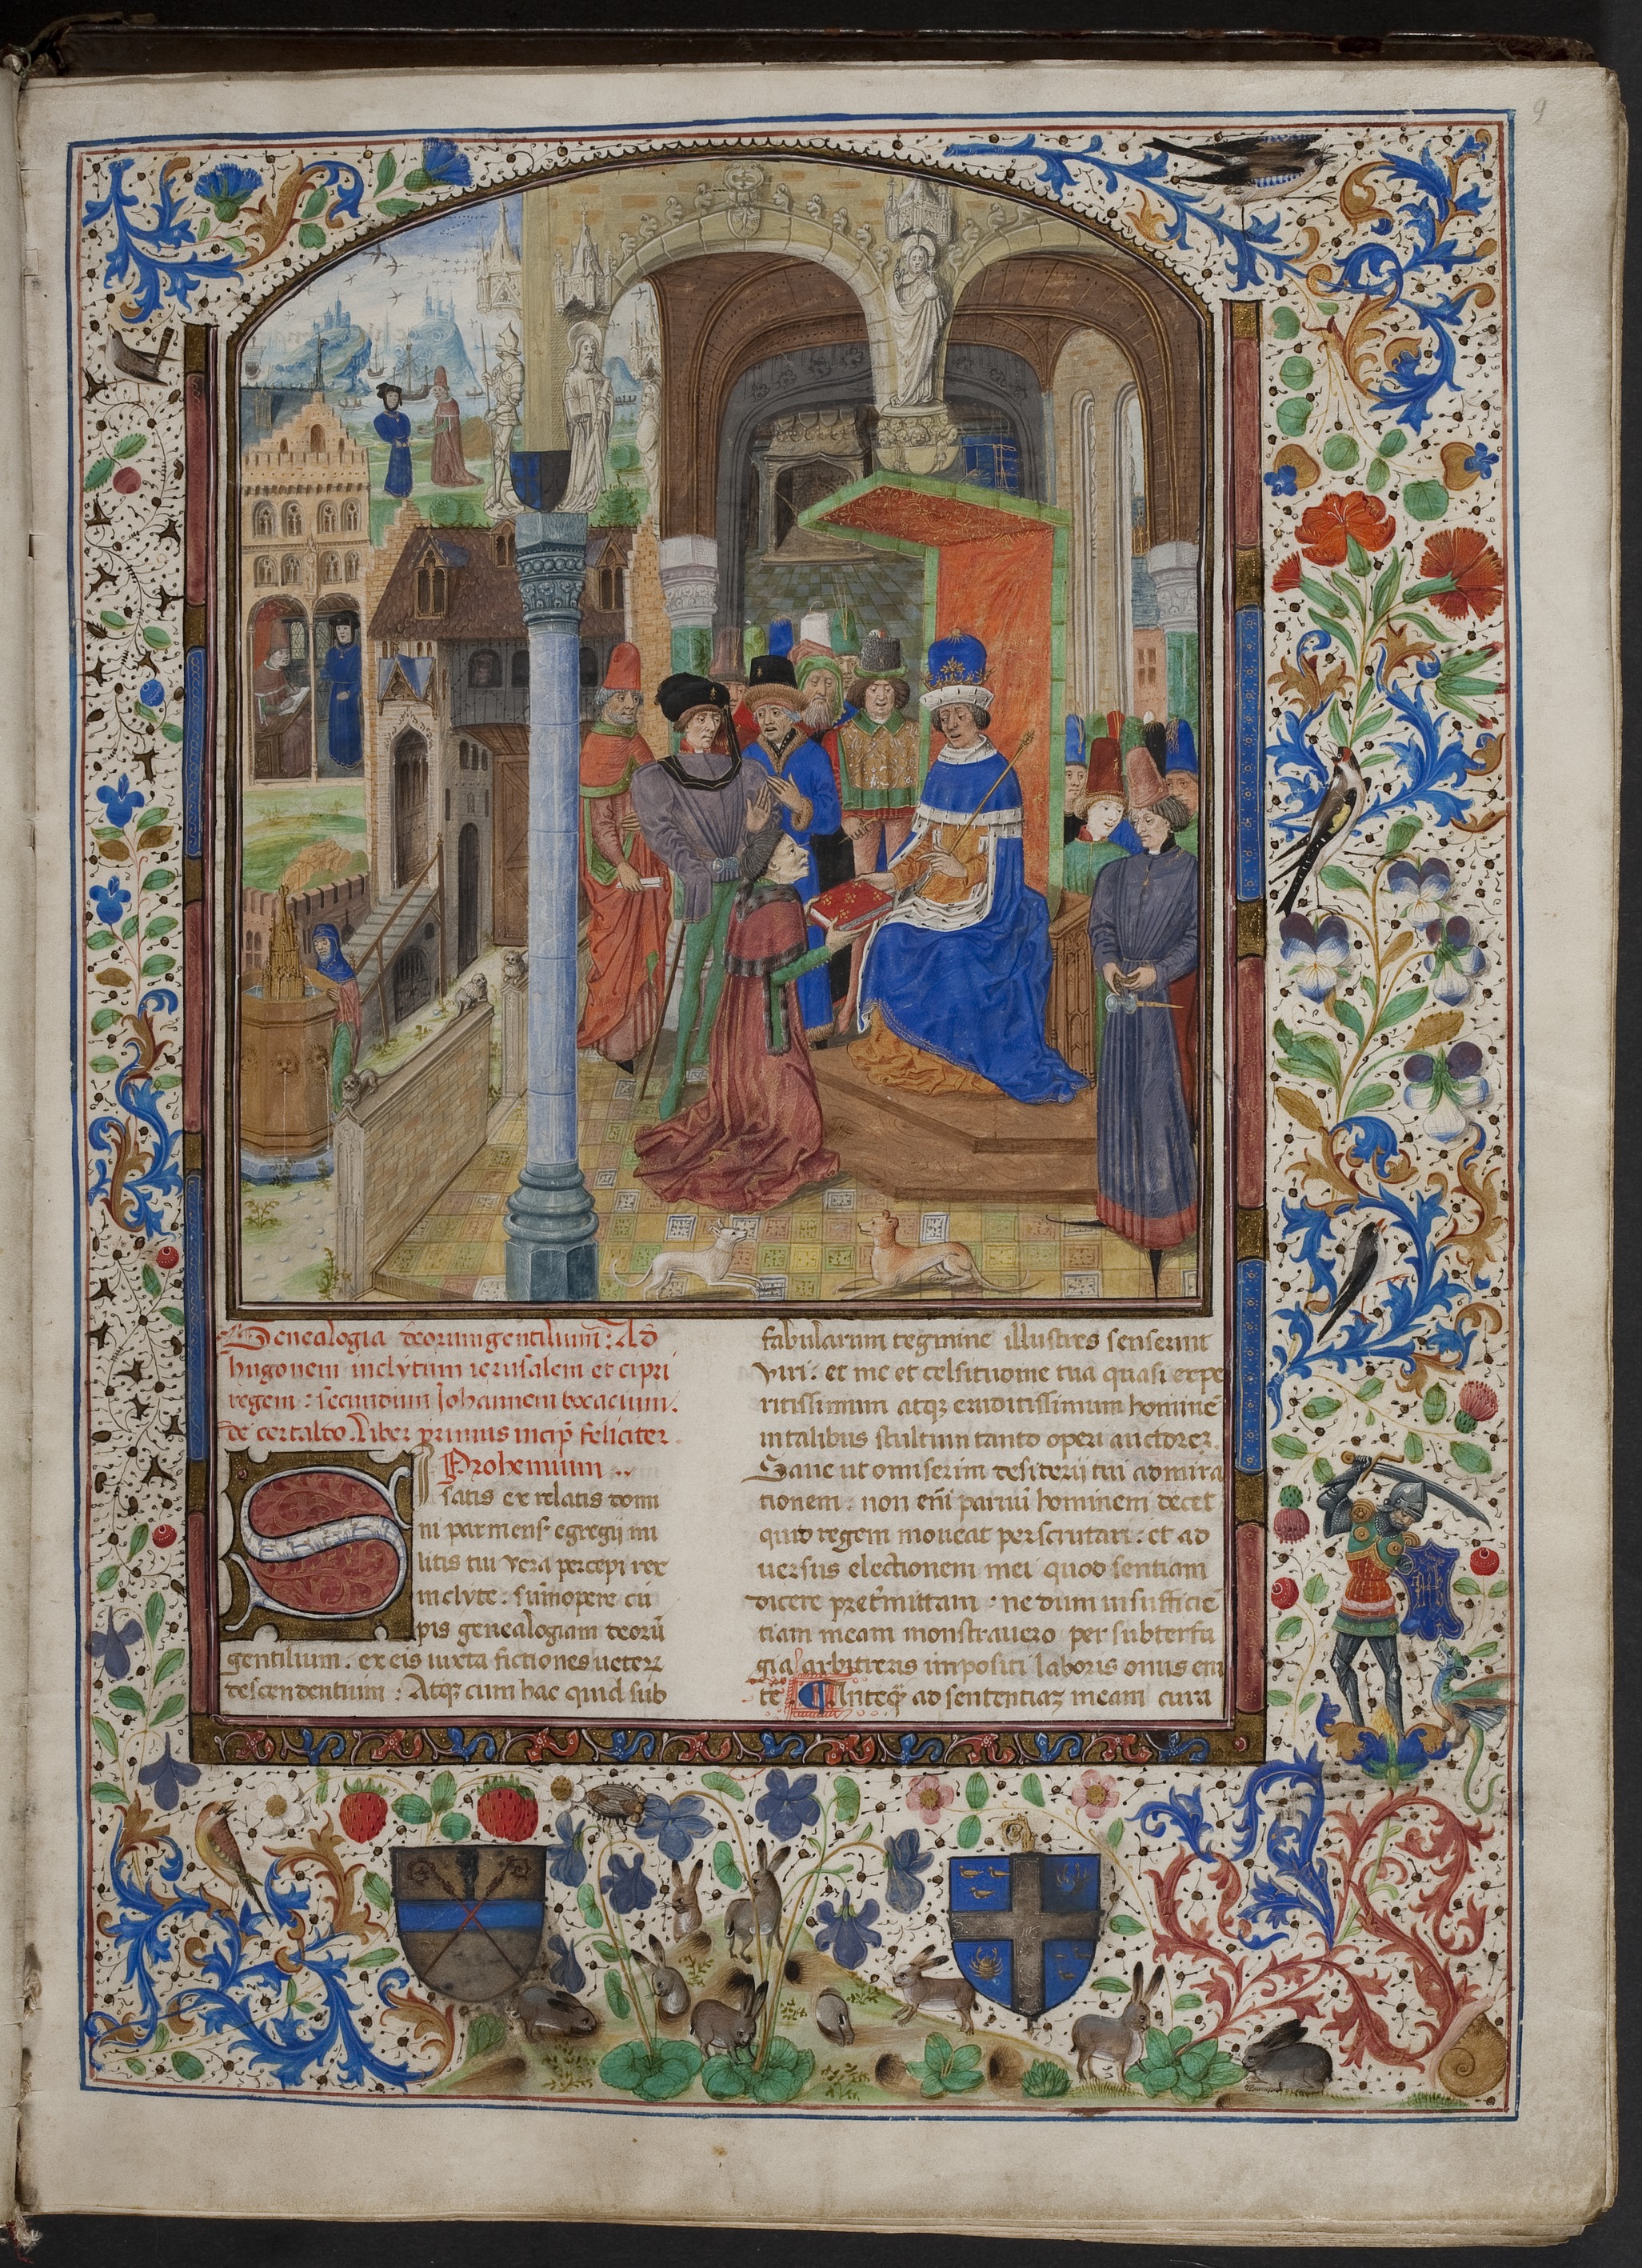 9
Genealogia deorum gentilium: Ad
hugonem inclytum ierusalem et cipri
regem: secundum Johannem bocacium.
de certaldo. Liber primus incip̄ feliciter.
Prohemium ..
Si
satis ex relatis domi
ni parmens̄ egregij mi
litis tui vera percepi rex
inclyte: su̅mopere cu
pis genealogiam deoru̅
gentilium. ex eis iuxta fictiones veterꝝ
descendentium: Atqꝫ cum hac quid sub
fabularum tegmine illustres senserint
viri: et me et celsitudine tua quasi expe
ritissimum atqꝫ eruditissimum homine̅
in talibus stultum tanto operi auctorez.
Sane ut omiserim desiderij tui admira
tionem: non eni̅ paruu̅ hominem decet
quid regem moueat perscrutari: et ad
uersus electionem mei quod sentiam
dicere pret̅mittam: ne dum insufficie̅
tiam meam monstrauero per subterfu
gia arbitreris impositi laboris onus eui
te ¶ Anteqꝫ̄ ad sententiaz meam circa